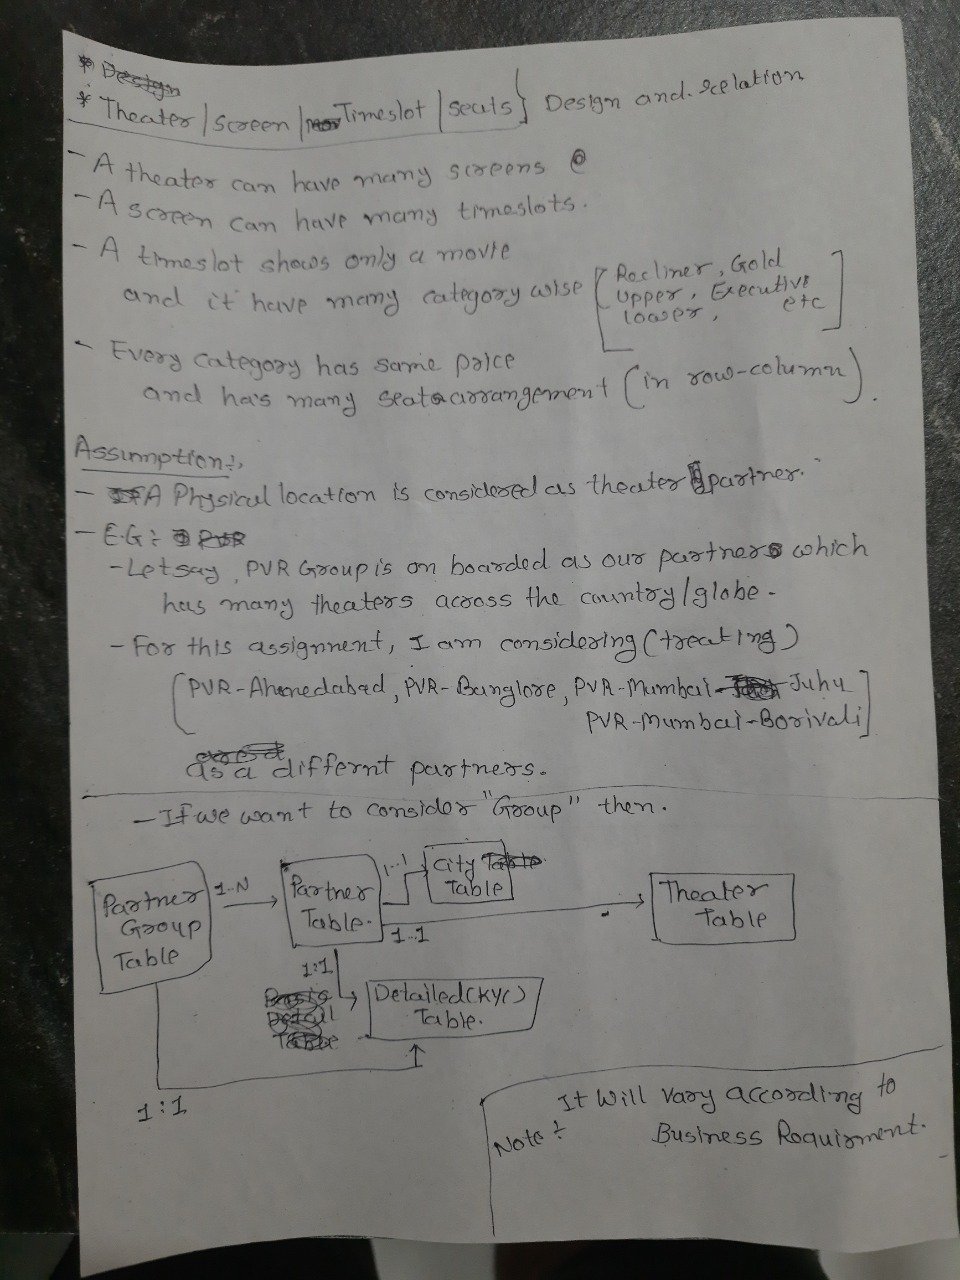 * Theater / Screen / Timeslot / seats } Design and relation
- A theater can have many screens
- A screen can have many timeslots.
- A timeslot shows only a movie
and it have many category wise [ Recliner, Gold
Upper, Executive
lower, etc ]
- Every category has same price
and has many seat arrangement (in row-column).
Assumption :-
- A Physical location is considered as theater partner.
- E.G :
- Let say, PVR Group is on boarded as our partner which
has many theaters across the country/globe -
- For this assignment, I am considering (treating)
[PVR-Ahmedabad, PVR-Banglore, PVR-Mumbai - Juhu
PVR-Mumbai-Borivali]
as a differnt partners.
- If we want to consider "Group" then.
Partner
Group
Table
1..N
Partner
Table.
1..1
City
Table
1..1
Theater
Table
1:1
Detailed(KYC)
Table.
1:1
Note : It will vary according to
Business Requirment.